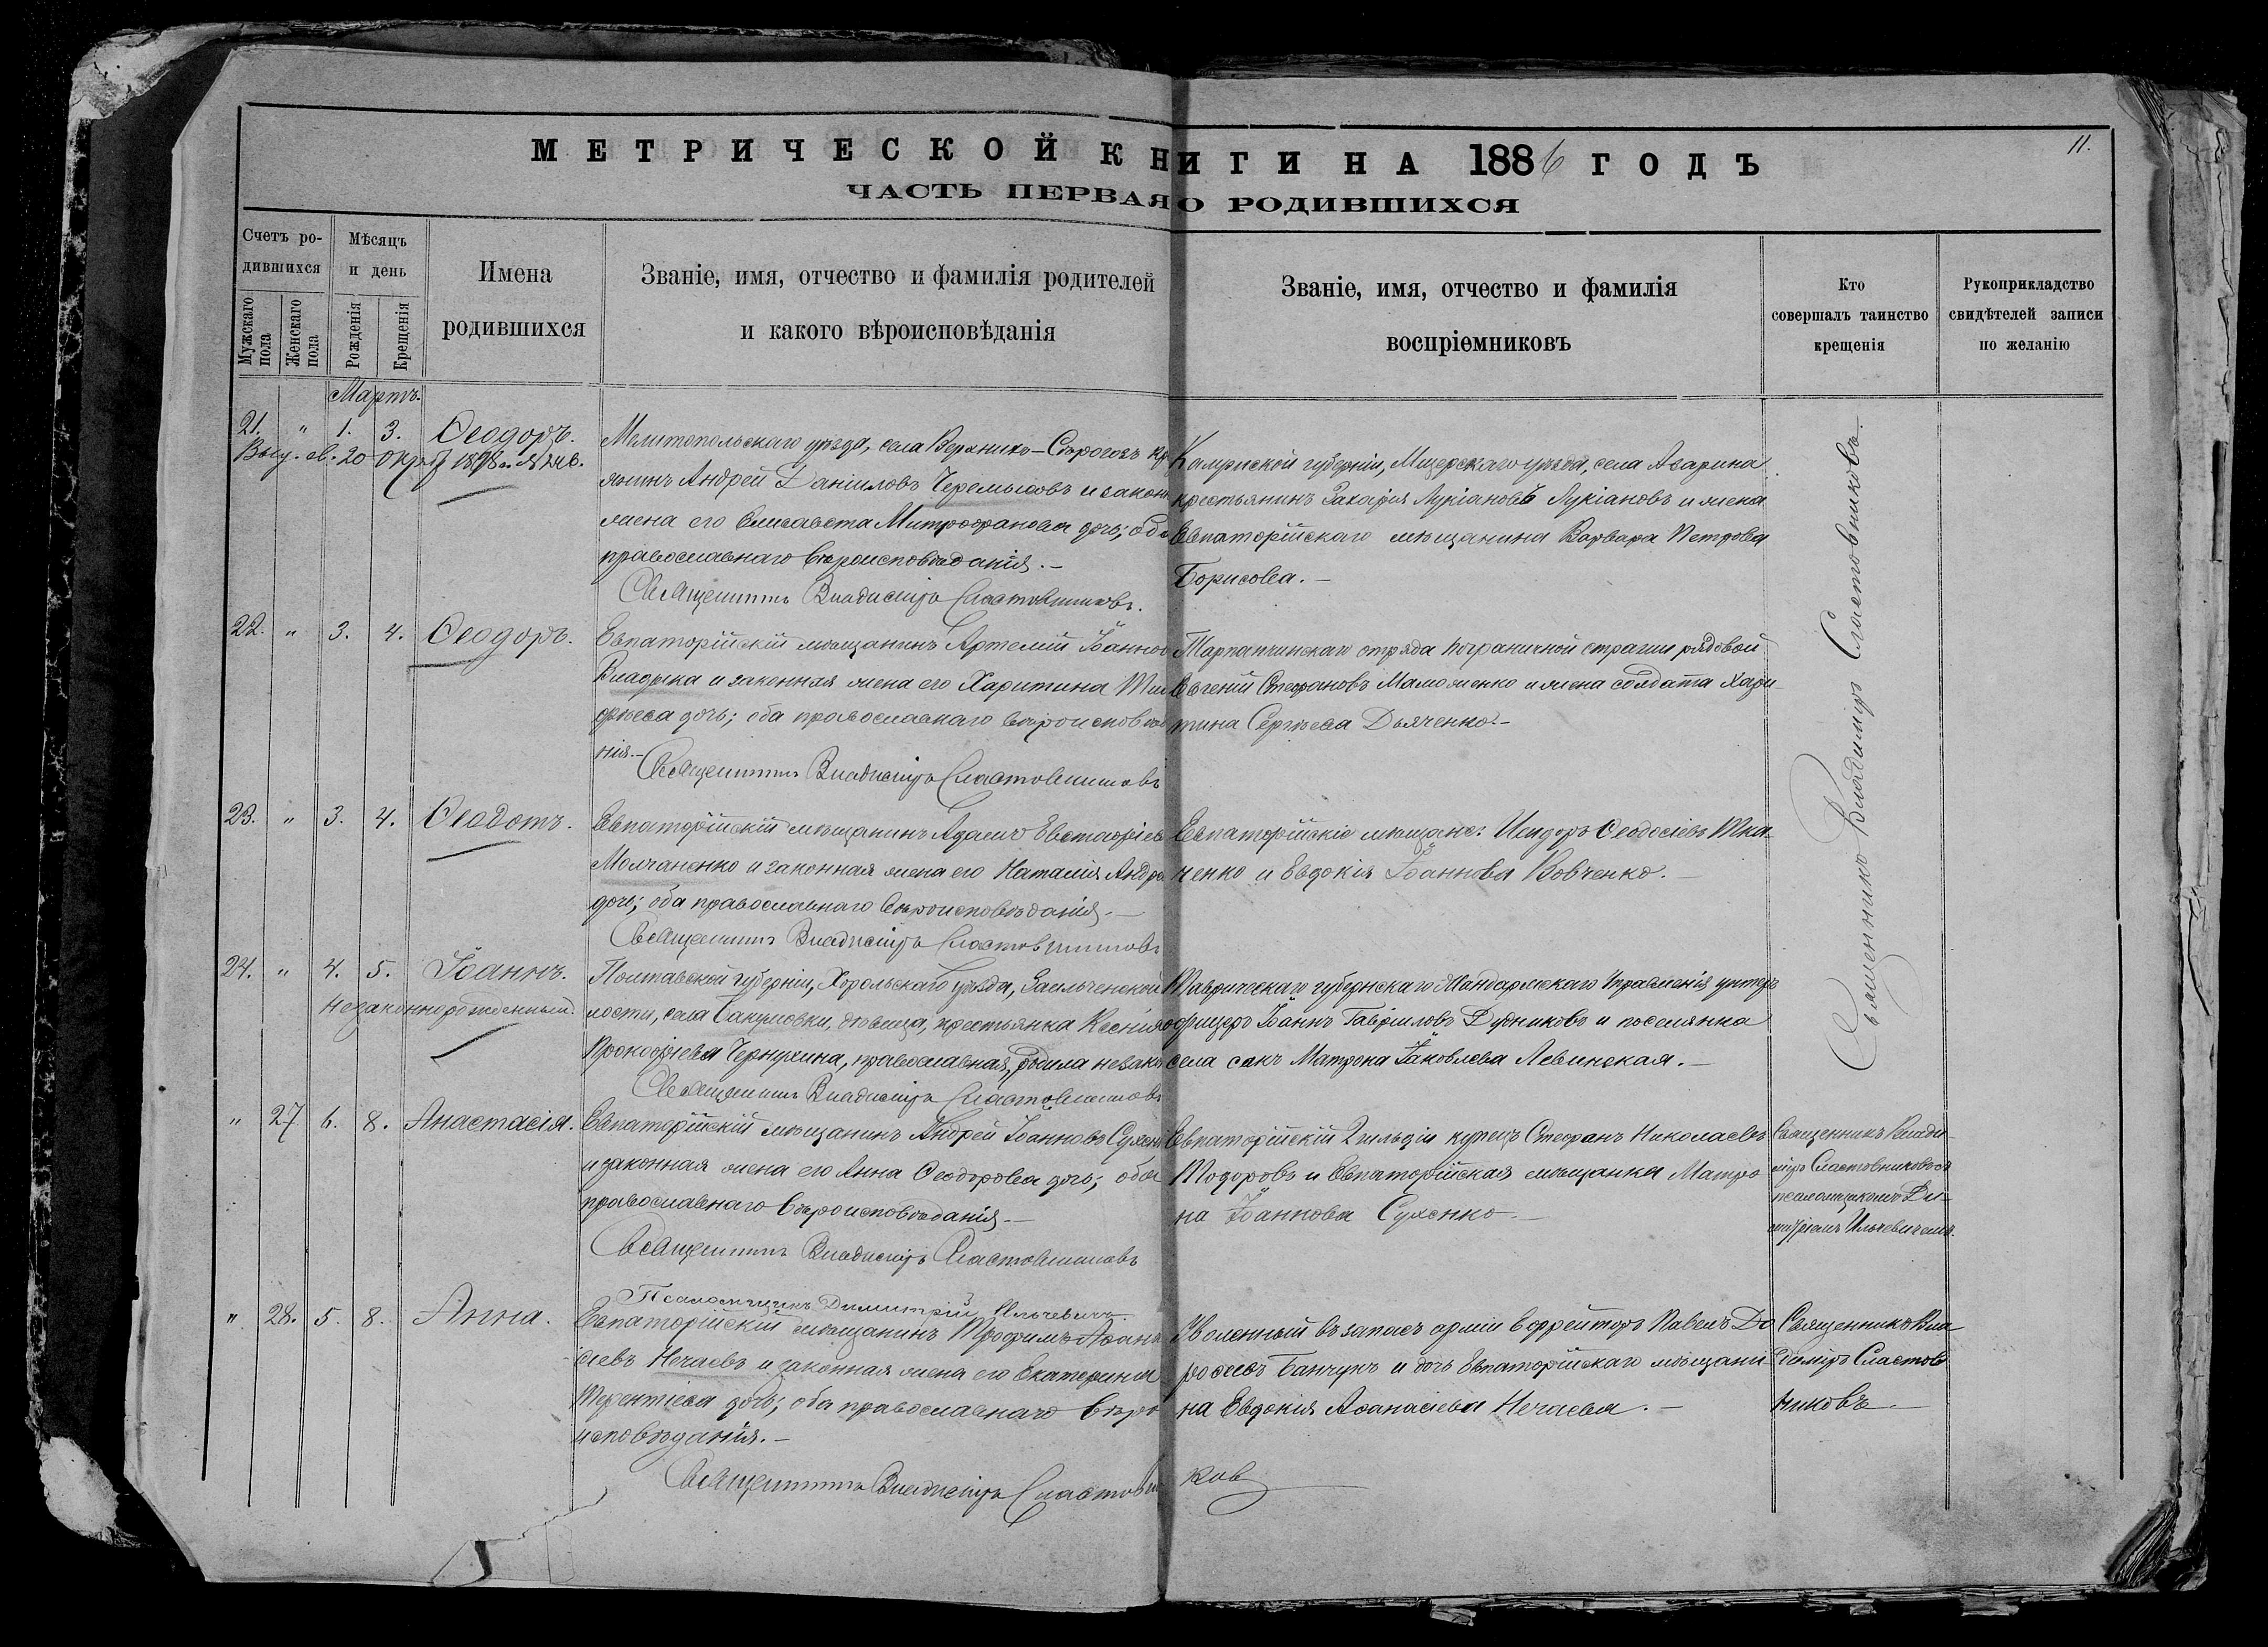 11.
МЕТРИЧЕСКОЙ КНИГИ НА 1886 ГОДЪ
ЧАСТЬ ПЕРВАЯ О РОДИВШИХСЯ
Счетъ ро-
дившихся
Мужскаго
пола
Женскаго
пола
Мѣсяцъ
и день
Рожденія
Крещенія
Имена
родившихся
Званіе, имя, отчество и фамилія родителей
и какого вѣроисповѣданія
Званіе, имя, отчество и фамилія
воспріемниковъ
Кто
совершалъ таинство
крещенія
Рукоприкладство
свидѣтелей записи
по желанію
Мартъ.
21. " 1. 3. Ѳеодоръ.
Мелитопольскаго уѣзда, села Верхнихъ-Сѣрогозъ кр
янинъ Андрей Даниловъ Черемысовъ и закон
жена его Елисавета Митрофанова дочь; оба
православнаго вѣроисповѣданія.-
Священникъ Владиміръ Сластовниковъ.
губерніи, уѣзда, села Азарина
крестьянинъ Захарія Лукіановъ Лукіановъ и жена
Евпаторійскаго мѣщанина Варвара Петрова
Борисова.-
Священникъ Владиміръ Сластовниковъ.
22. " 3. 4. Ѳеодоръ.
Евпаторійскій мѣщанинъ Артемій Іоаннов
Владыка и законная жена его Харитина Тим
фѣева дочь; оба православнаго вѣроисповѣда
нія.-
Священникъ Владиміръ Сластовниковъ
Тарпанчинскаго отряда пограничной стражи рядовой
Евгеній Стефановъ Маможенко и жена солдата Хари-
тина Сергѣева Дьяченко.-
23. " 3. 4. Ѳеодотъ.
Евпаторійскій мѣщанинъ Адамъ Евстафіев
Молчаненко и законная жена его Наталія Андре
дочь; оба православнаго вѣроисповѣданія.-
Священникъ Владиміръ Сластовниковъ
Евпаторійскіе мѣщане: Исидоръ Ѳеодосіевъ Тка-
ченко и Евдокія Іоаннова Вовченко.-
24. " 4. 5. Іоаннъ.
Незаконнорожденный.
Полтавской губерніи, Хорольскаго уѣзда,
лости, села Бакумовки, дѣвица, крестьянка Ксенія
Прокофіева Чернухина, православная, родила незак
Священникъ Владиміръ Сластовниковъ
Таврическаго губернскаго Жандармскаго Управленія унтеръ
офицеръ Іоаннъ Гавріиловъ Дудниковъ и поселянка
села Сакъ Матрона Іаковлева Левинская.-
" 27 6. 8. Анастасія.
Евпаторійскій мѣщанинъ Андрей Іоанновъ Сухен
и законная жена его Анна Ѳеодорова дочь; оба
православнаго вѣроисповѣданія.-
Священникъ Владиміръ Сластовниковъ
Псаломщикъ Димитрій Ильчевичъ.
Евпаторійскій 2 гильдіи купецъ Стефанъ Николаевъ
Тодоровъ и Евпаторійская мѣщанка Матро
на Іоаннова Сухенко.-
Священникъ Влади-
міръ Сластовниковъ съ
псаломщикомъ Ди-
митріемъ Ильчевичемъ.
" 28. 5. 8. Анна.
Евпаторійскій мѣщанинъ Трофимъ Аѳана
сіевъ Нечаевъ и законная жена его Екатерина
Терентіева дочь; оба православнаго вѣро
исповѣданія.-
Священникъ Владиміръ Сластовниковъ
Уволенный въ запасъ арміи ефрейторъ Павелъ До
роѳеевъ Банчукъ и дочь Евпаторійскаго мѣщани
на Евдокія Аѳанасіева Нечаева.-
Священникъ Вла
диміръ Сластов
никовъ.-